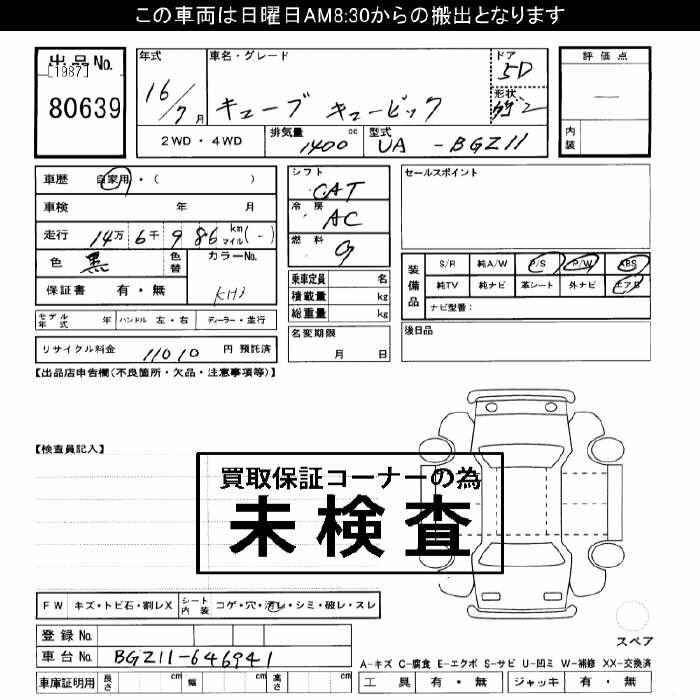 この車両は日曜日AM8:30からの搬出となります
出品No.
[1987]
80639
年式 車名・グレード ドア
16/7月 キューブ キュービック 5D
形状
2WD・4WD 排気量 1400 cc 型式 UA - BGZ11
評価点
—
内装
車歴 自家用・( )
車検 年 月
走行 14万 6千 9 86 km マイル (-)
色 黒 色替 カラーNo. KH3
保証書 有・無
モデル年式 年 ハンドル 左・右 ディーラー・並行
リサイクル料金 11010 円 預託済
シフト CAT
冷房 AC
燃料 G
乗車定員 名
積載量 kg
総重量 kg
名変期限
月 日
セールスポイント
装備品
S/R 純A/W P/S P/W ABS
純TV 純ナビ 革シート 外ナビ エアB
ナビ型番:
後日品
【出品店申告欄(不良箇所・欠品・注意事項等)】
【検査員記入】
買取保証コーナーの為
未検査
FW キズ・トビ石・割レX シート内装 コゲ・穴・汚レ・シミ・破レ・スレ
登録No.
車台No. BGZ11-646941
車庫証明用 長さ cm 幅 cm 高さ cm
スペア
A-キズ C-腐食 E-エクボ S-サビ U-凹ミ W-補修 XX-交換済
工具 有・無 ジャッキ 有・無